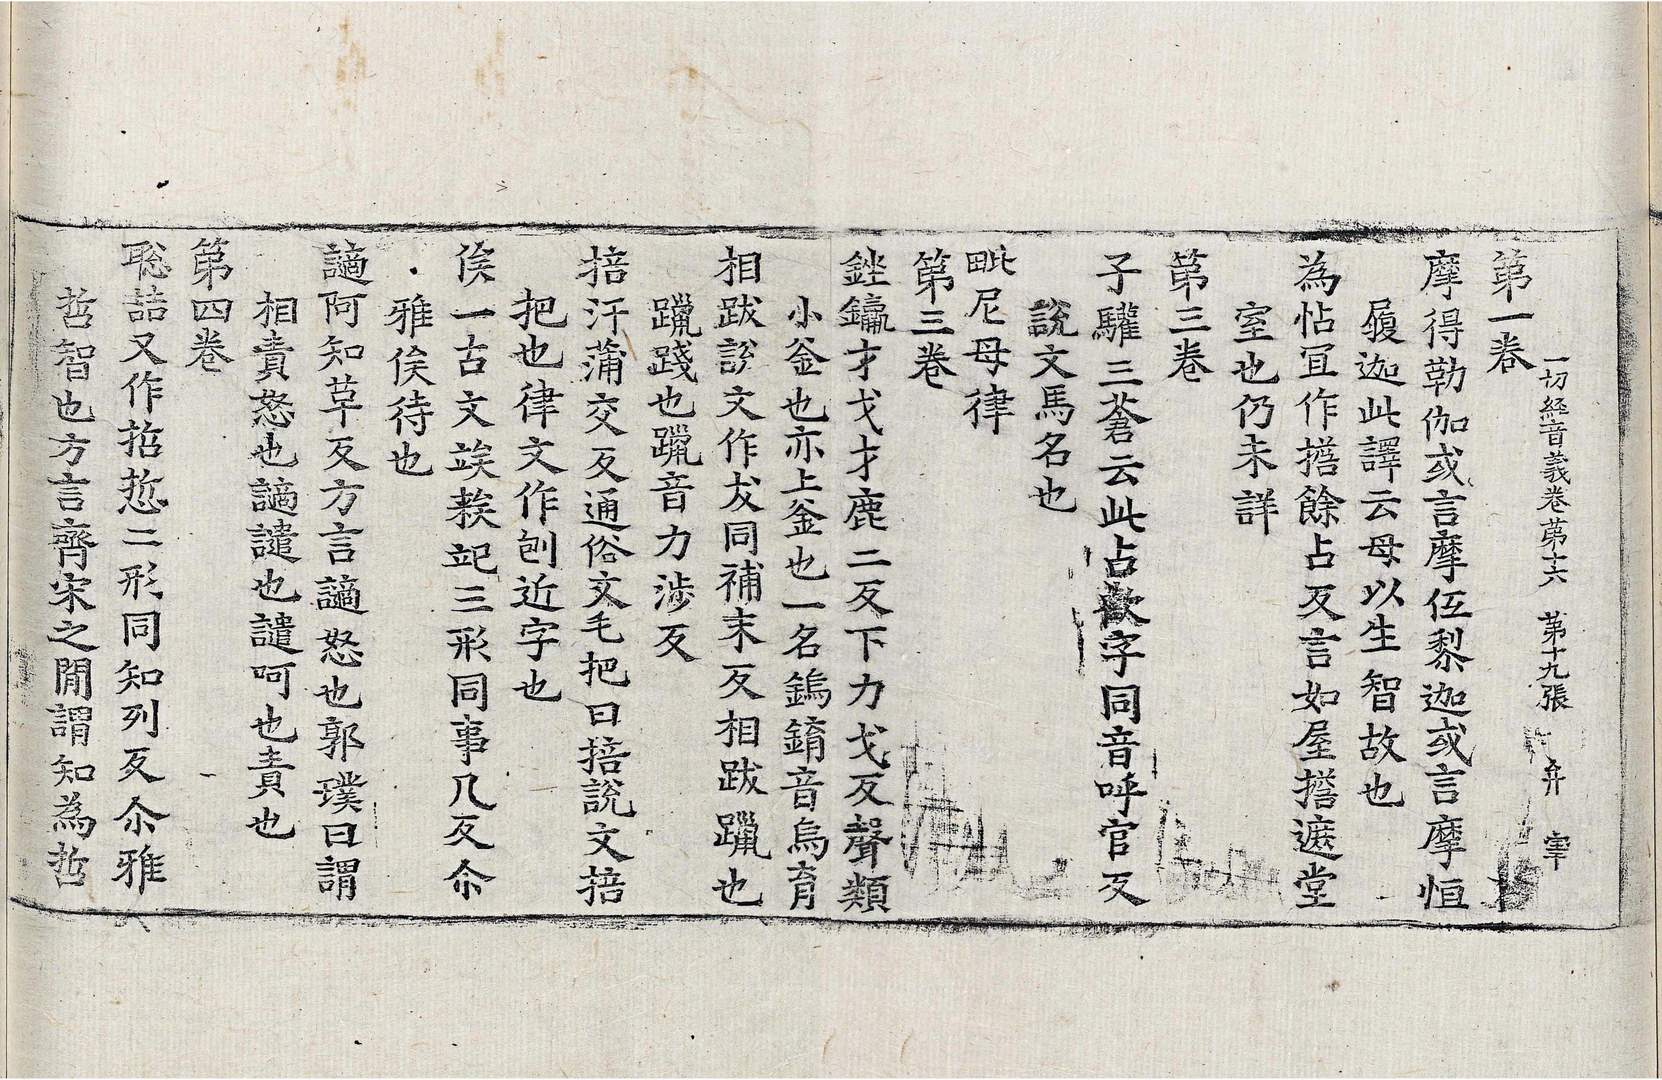 一切経音義卷第十六 第十九張 弁
第一卷
摩得勒伽或言摩伍黎迦或言摩恒
履迦此譯云母以生智故也
為怗冝作㨭餘占反言如屋㨭遮堂
室也仍未詳
第三卷
子驩三蒼云此占歡字同音呼官反
說文馬名也
毗尼母律
第三卷
銼鑪才戈才鹿二反下力戈反聲類
小釜也亦上釜也一名鎢錥音烏育
相跋說文作犮同補末反相跋躐也
躐踐也躐音力涉反
掊汗蒲交反通俗文毛把曰掊說文掊
把也律文作刨近字也
俟一古文竢䇃𥏳三形同事几反尒
雅俟待也
讁阿知革反方言讁怒也郭璞曰謂
相責怒也讁譴也譴呵也責也
第四卷
聡喆又作嚞悊二形同知列反尒雅
哲智也方言齊宋之閒謂知為哲